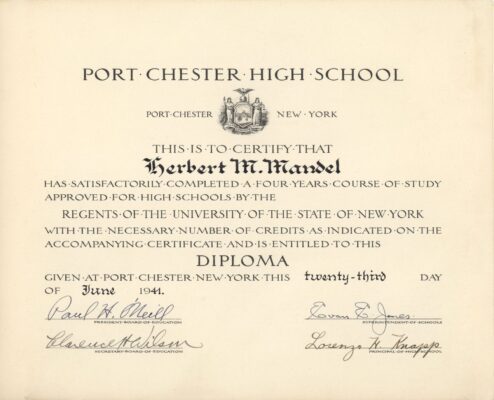 PORT·CHESTER·HIGH·SCHOOL
PORT·CHESTER NEW·YORK
THIS·IS·TO·CERTIFY·THAT
Herbert M. Mandel
HAS·SATISFACTORILY·COMPLETED·A·FOUR·YEARS·COURSE·OF·STUDY
APPROVED·FOR·HIGH·SCHOOLS·BY·THE
REGENTS·OF·THE·UNIVERSITY·OF·THE·STATE·OF·NEW·YORK
WITH·THE·NECESSARY·NUMBER·OF·CREDITS·AS·INDICATED·ON·THE
ACCOMPANYING·CERTIFICATE·AND·IS·ENTITLED·TO·THIS
DIPLOMA
GIVEN·AT·PORT·CHESTER·NEW·YORK·THIS twenty-third DAY
OF June 1941.
Paul H. O'Neill Evan E. Jones
PRESIDENT·BOARD·OF·EDUCATION SUPERINTENDENT·OF·SCHOOLS
Clarence H Wilson Lorenzo H. Knapp
SECRETARY·BOARD·OF·EDUCATION PRINCIPAL·OF·HIGH·SCHOOL